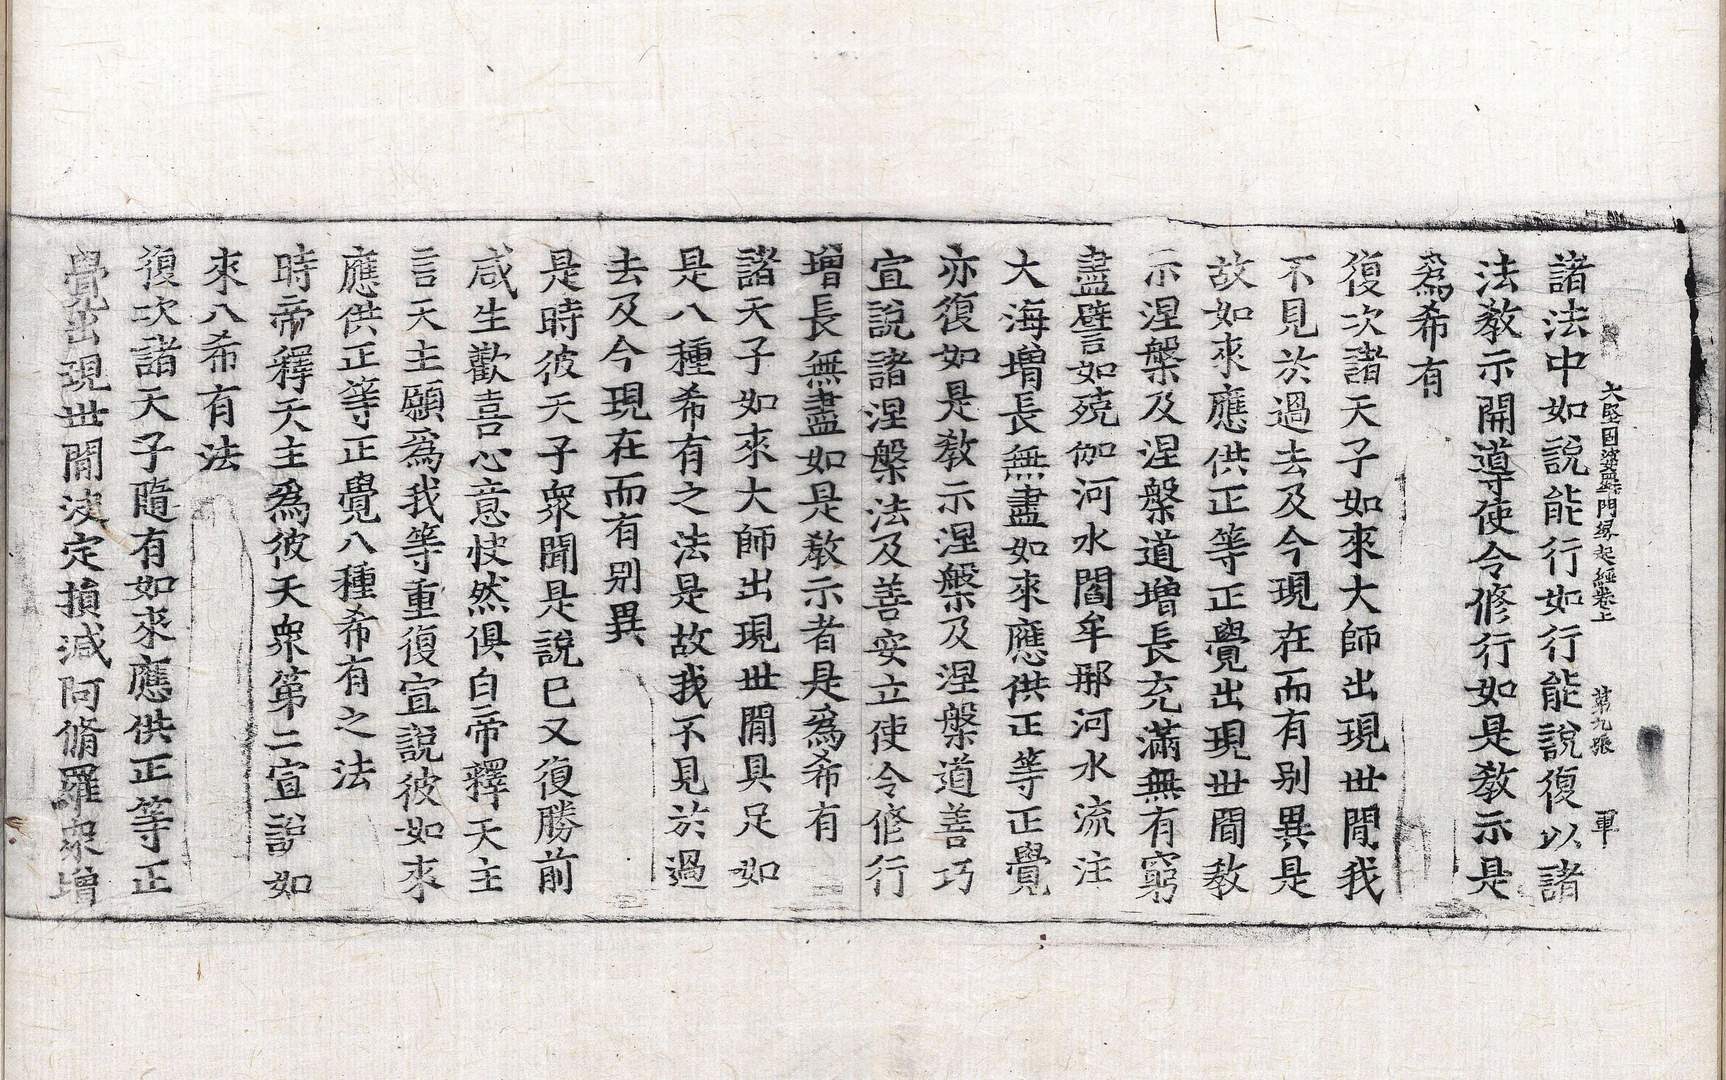 大堅固婆羅門緣起經卷上 第九張 軍
諸法中如說能行如行能說復以諸
法教示開導使令修行如是教示是
為希有
復次諸天子如來大師出現世間我
不見於過去及今現在而有別異是
故如來應供正等正覺出現世間教
示涅槃及涅槃道增長充滿無有窮
盡譬如殑伽河水閻牟那河水流注
大海增長無盡如來應供正等正覺
亦復如是教示涅槃及涅槃道善巧
宣說諸涅槃法及善安立使令修行
增長無盡如是教示者是為希有
諸天子如來大師出現世間具足如
是八種希有之法是故我不見於過
去及今現在而有別異
是時彼天子眾聞是說已又復勝前
咸生歡喜心意快然俱白帝釋天主
言天主願為我等重復宣說彼如來
應供正等正覺八種希有之法
時帝釋天主為彼天眾第二宣說如
來八希有法
復次諸天子隨有如來應供正等正
覺出現世間決定損減阿脩羅眾增